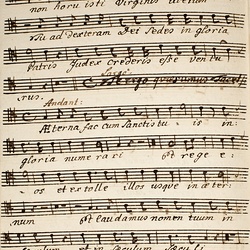 non horuisti Virginis uterum
Tu ad dexteram Dei sedes in gloria
Patris Judex crederis esse ventu
Largo
rus. Te ergo quaesumus
Andant:
Æterna fac cum Sanctis tu is in
gloria nume rari est rege e
os et extolle illos usque in æter:
num est laudamus nomen tuum in
et in sæculum sæculi